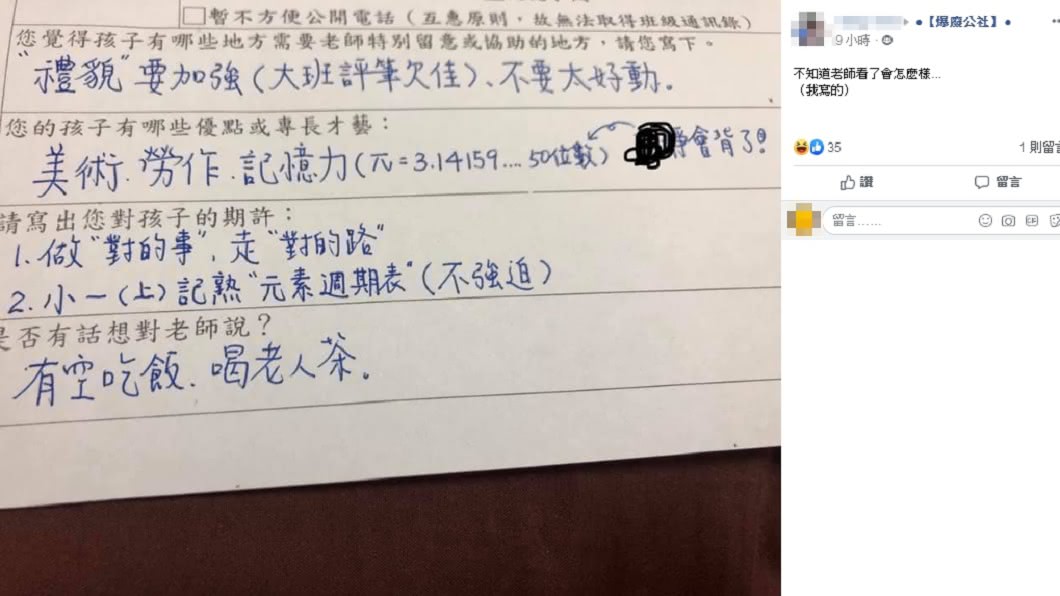 暫不方便公開電話（互惠原則，故無法取得班級通訊錄）
您覺得孩子有哪些地方需要老師特別留意或協助的地方，請您寫下。
"禮貌"要加強(大班評筆欠佳)、不要太好動。
您的孩子有哪些優點或專長才藝：
美術、勞作、記憶力(π=3.14159....50位數) 會背了!
請寫出您對孩子的期許：
1. 做"對的事", 走"對的路"
2. 小一(上)記熟"元素週期表"(不強迫)
是否有話想對老師說？
有空吃飯、喝老人茶。
【爆廢公社】
9 小時
不知道老師看了會怎麼樣...
（我寫的）
35
1 則留言
讚
留言
留言......